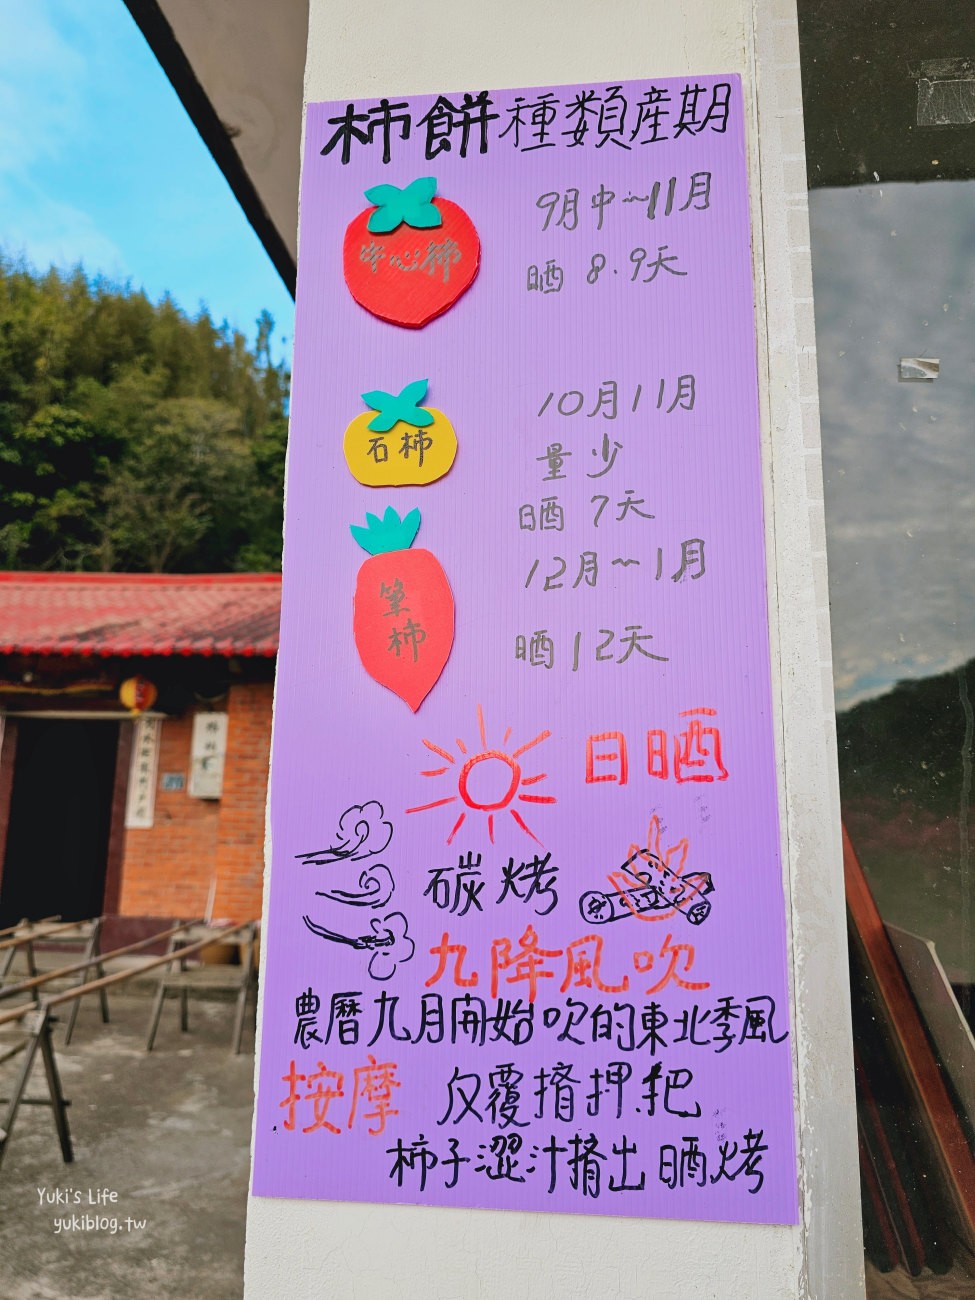 柿餅種類産期
牛心柿
9月中~11月
晒 8.9天
石柿
10月11月
量少
晒 7天
筆柿
12月~1月
晒12天
日晒
碳烤
九降風吹
農曆九月開始吹的東北季風
按摩 反覆擠押把
柿子澀汁擠出晒烤
Yuki's Life
yukiblog.tw